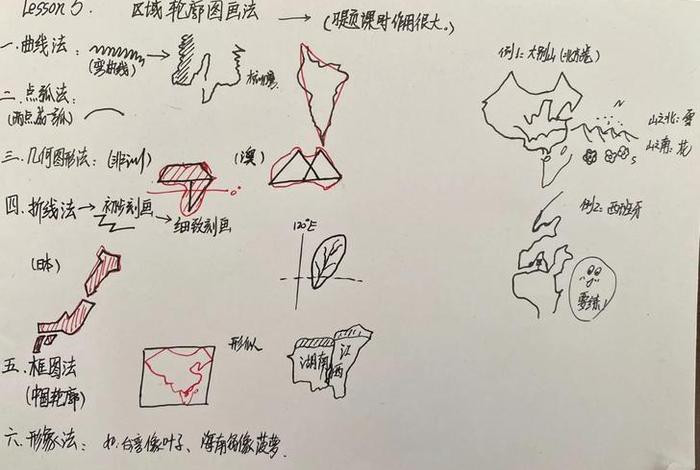 Lesson 5. 区域轮廓图画法 → (提质课时作用很大。)
一.曲线法:
(弯曲线)
二.点弧法:
(两点若弧)
三.几何图形法:(非洲) (澳)
0°
四.折线法→初步刻画
细致刻画
(日本)
120°E
五.框图法
(中国轮廓)
形似
湖南 江西
六.形象法: 如.台湾像叶子、海南岛像菠萝.
例1:大别山(北方卷)
N
山之北:雪
山之南:花
S
例2:西班牙
要练!